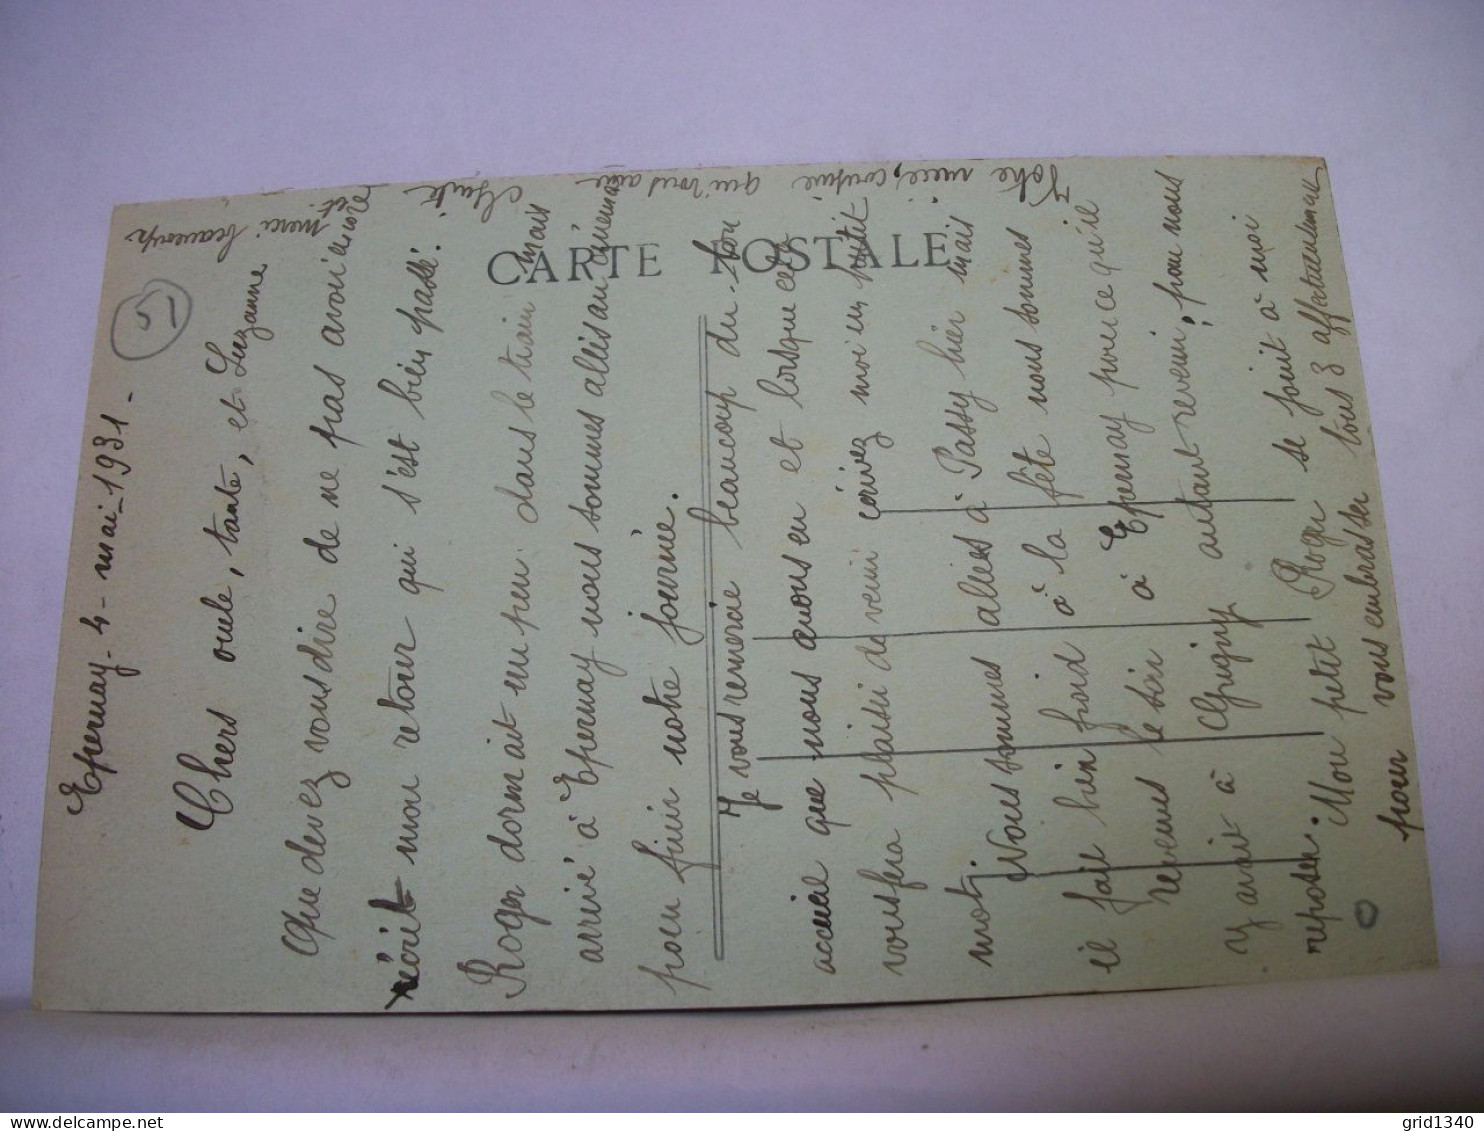 Epernay - 4 - mai - 1931 -
Chers oncle, tante, et Suzanne
Que devez vous dire de ne pas avoir encore
récit mon retour qui s'est bien passé.
Roger dormait un peu dans le train mais
arrivé à Epernay nous sommes allés au cinéma
pour finir notre journée.
Je vous remercie beaucoup du bon
accueil que nous avons eu et lorsque cela
vous fera plaisir de venir écrivez moi un petit
mot. Nous sommes allées à Passy hier mais
il fait bien froid à la fête nous sommes
revenus le soir à Epernay pour ce qu'il
y avait à autant revenir, pour nous
reposer. Mon petit Roger se joint à moi
pour vous embrasser tous 3 affectueusement
Votre nièce, cousine qui vous aime
et merci beaucoup
CARTE POSTALE
51
delcampe.net
grid1340